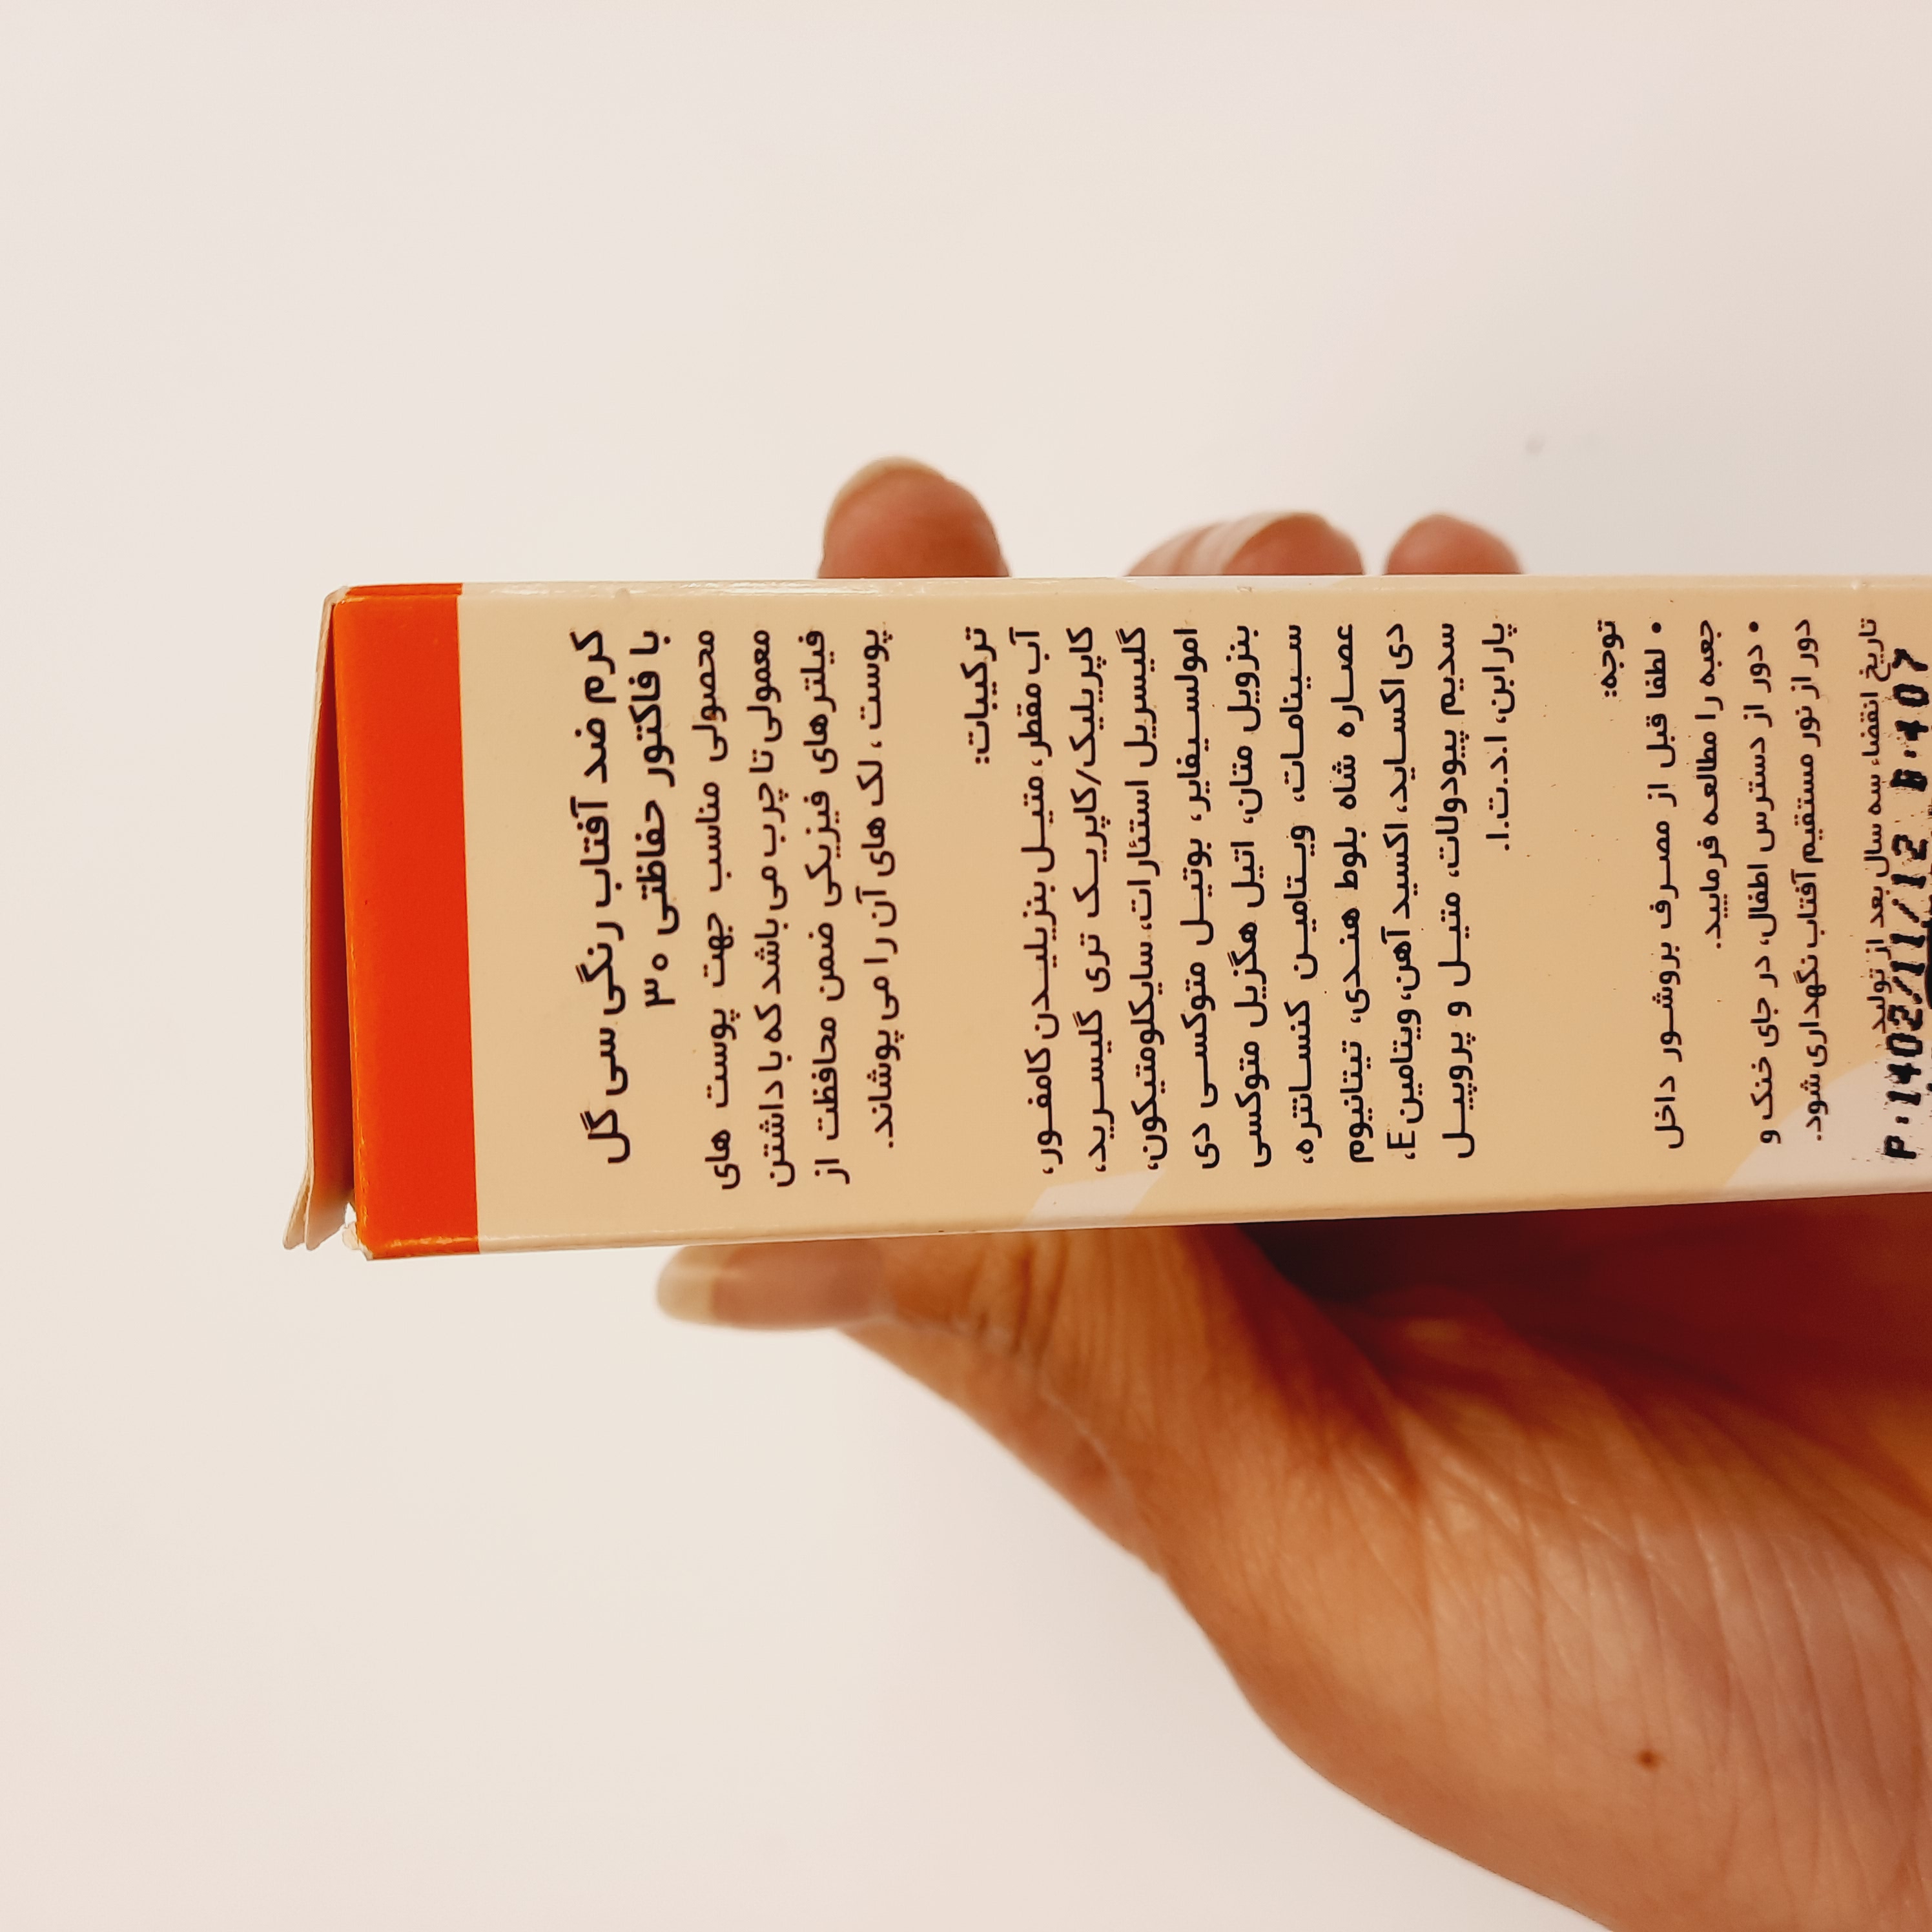 کرم ضد آفتاب رنگی سی گل
با فاکتور حفاظتی ۳۰
محصولی مناسب جهت پوست های
معمولی تا چرب می باشد که با داشتن
فیلترهای فیزیکی ضمن محافظت از
پوست، لک های آن را می پوشاند.
ترکیبات:
آب مقطر، متیل بنزیلیدن کامفور،
کاپریلیک/کاپریک تری گلیسرید،
گلیسریل استئارات، سایکلومتیکون،
امولسیفایر، بوتیل متوکسی دی
بنزویل متان، اتیل هگزیل متوکسی
سینامات، ویتامین کنسانتره،
عصاره شاه بلوط هندی، تیتانیوم
دی اکساید، اکسید آهن، ویتامین E،
سدیم پیدولات، متیل و پروپیل
پارابن، ا.د.ت.ا.
توجه:
• لطفا قبل از مصرف بروشور داخل
جعبه را مطالعه فرمایید.
• دور از دسترس اطفال، در جای خنک و
دور از نور مستقیم آفتاب نگهداری شود.
تاریخ انقضاء سه سال بعد از تولید
P:1402/11/12